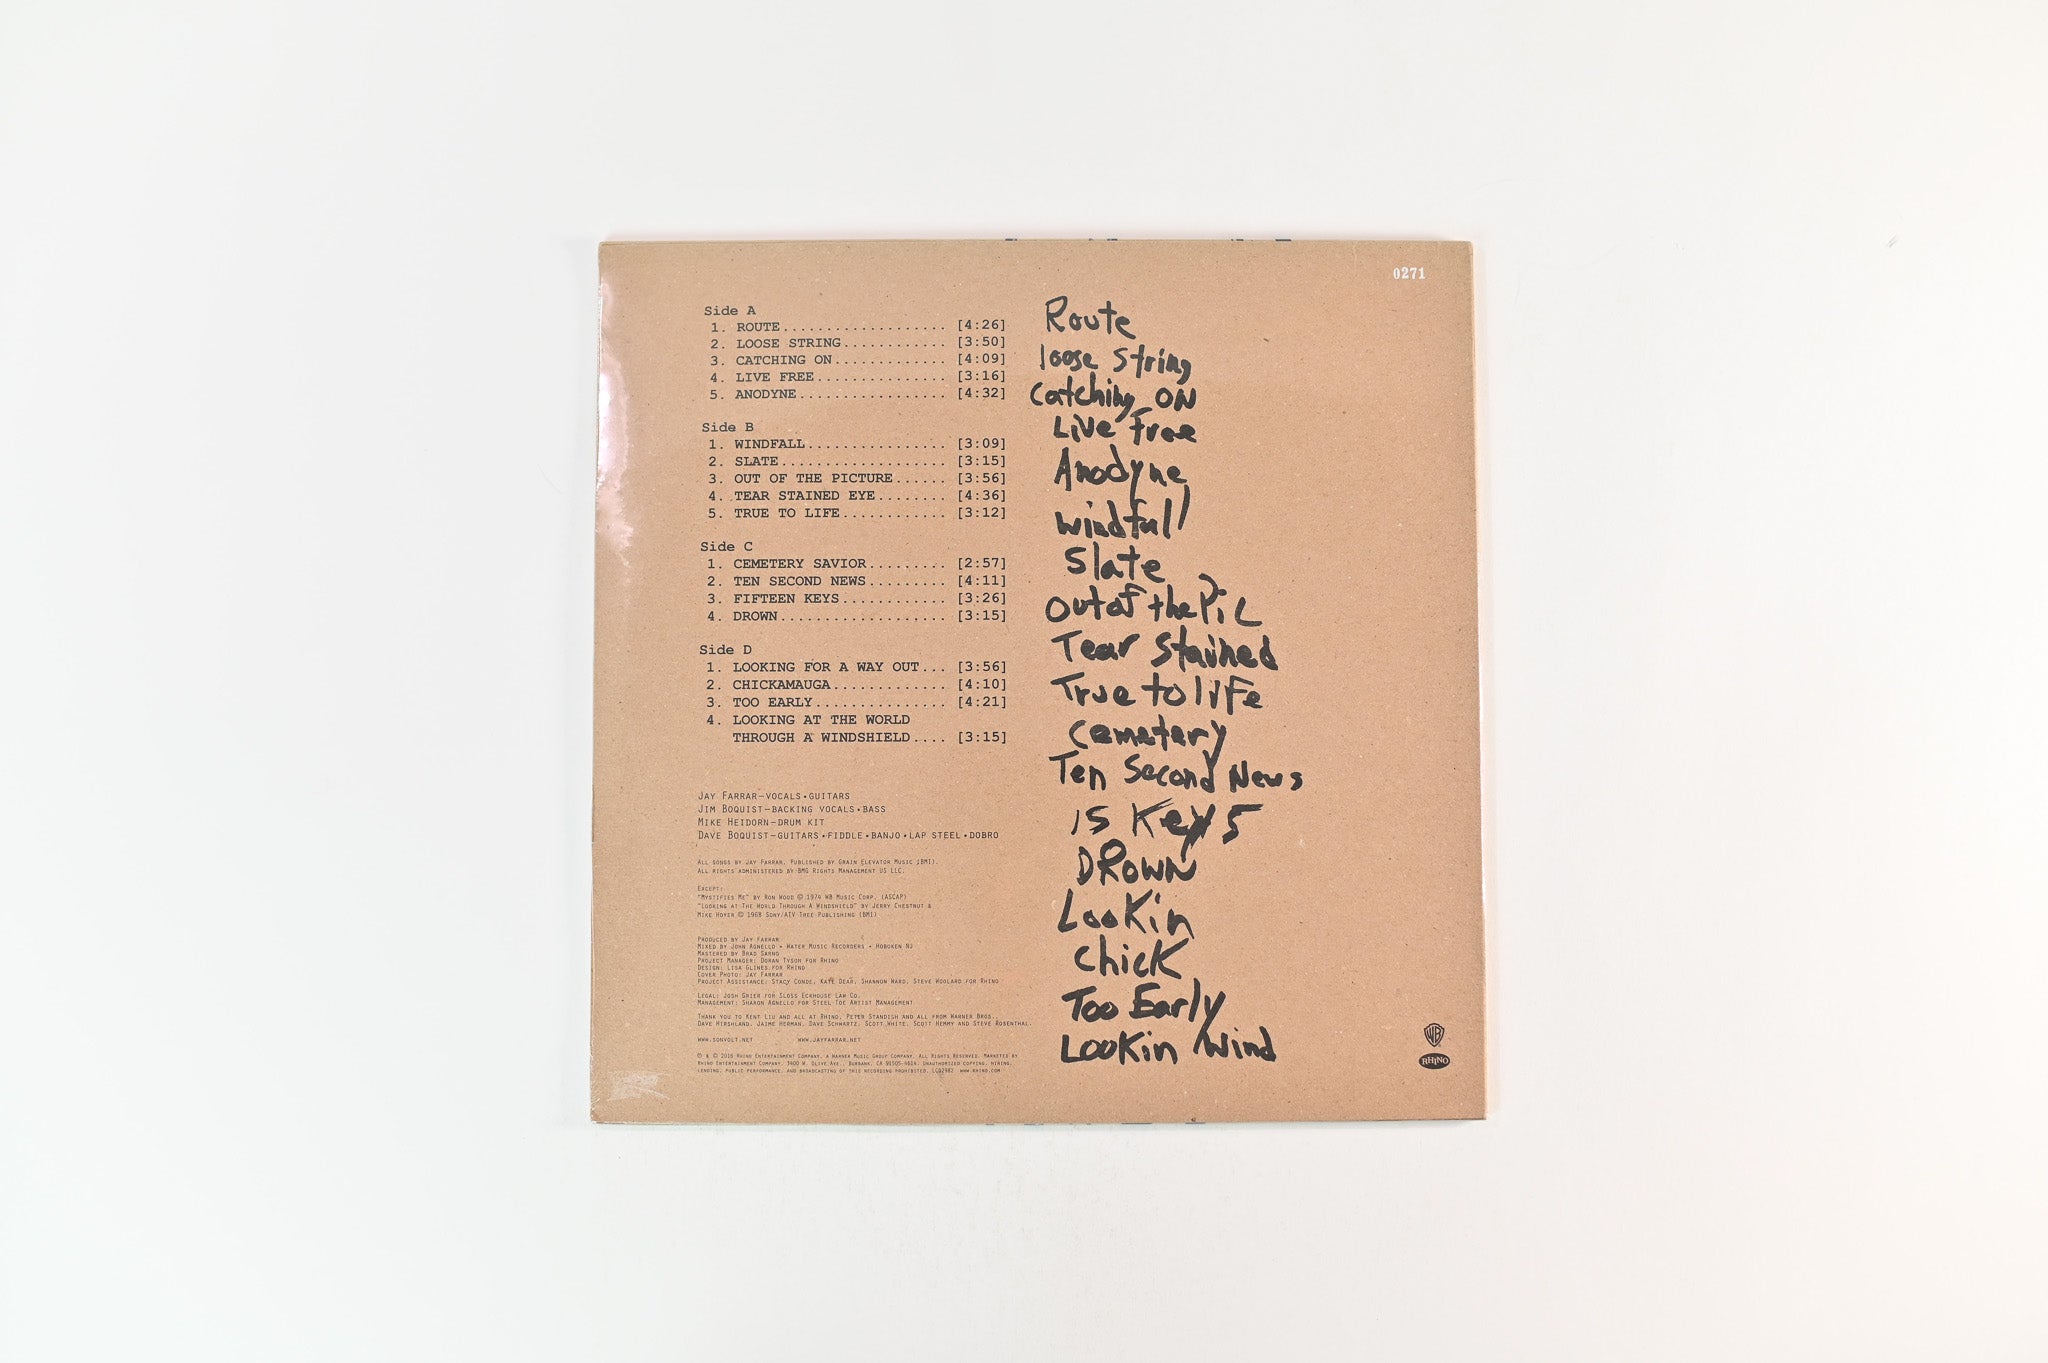 0271
Side A
1. ROUTE................... [4:26]
2. LOOSE STRING............ [3:50]
3. CATCHING ON............. [4:09]
4. LIVE FREE............... [3:16]
5. ANODYNE................. [4:32]
Side B
1. WINDFALL................ [3:09]
2. SLATE................... [3:15]
3. OUT OF THE PICTURE...... [3:56]
4. TEAR STAINED EYE........ [4:36]
5. TRUE TO LIFE............ [3:12]
Side C
1. CEMETERY SAVIOR......... [2:57]
2. TEN SECOND NEWS......... [4:11]
3. FIFTEEN KEYS............ [3:26]
4. DROWN................... [3:15]
Side D
1. LOOKING FOR A WAY OUT... [3:56]
2. CHICKAMAUGA............. [4:10]
3. TOO EARLY............... [4:21]
4. LOOKING AT THE WORLD
THROUGH A WINDSHIELD.... [3:15]
JAY FARRAR—VOCALS•GUITARS
JIM BOQUIST—BACKING VOCALS•BASS
MIKE HEIDORN—DRUM KIT
DAVE BOQUIST—GUITARS•FIDDLE•BANJO•LAP STEEL•DOBRO
ALL SONGS BY JAY FARRAR, PUBLISHED BY GRAIN ELEVATOR MUSIC (BMI).
ALL RIGHTS ADMINISTERED BY BMG RIGHTS MANAGEMENT US LLC.
EXCEPT:
"MYSTIFIES ME" BY RON WOOD © 1974 WB MUSIC CORP. (ASCAP)
"LOOKING AT THE WORLD THROUGH A WINDSHIELD" BY JERRY CHESTNUT &
MIKE HOYER © 1968 SONY/ATV TREE PUBLISHING (BMI)
PRODUCED BY JAY FARRAR
MIXED BY JOHN AGNELLO • WATER MUSIC RECORDERS • HOBOKEN NJ
MASTERED BY BRAD SARNO
PROJECT MANAGER: DORAN TYSON FOR RHINO
DESIGN: LISA GLINES FOR RHINO
COVER PHOTO: JAY FARRAR
PROJECT ASSISTANCE: STACY CONDE, KATE DEAR, SHANNON WARD, STEVE WOOLARD FOR RHINO
LEGAL: JOSH GRIER FOR SLOSS ECKHOUSE LAW CO.
MANAGEMENT: SHARON AGNELLO FOR STEEL TOE ARTIST MANAGEMENT
THANK YOU TO KENT LIU AND ALL AT RHINO, PETER STANDISH AND ALL FROM WARNER BROS.,
DAVE HIRSHLAND, JAIME HERMAN, DAVE SCHWARTZ, SCOTT WHITE, SCOTT HEMMY AND STEVE ROSENTHAL.
WWW.SONVOLT.NET WWW.JAYFARRAR.NET
℗ & © 2016 RHINO ENTERTAINMENT COMPANY, A WARNER MUSIC GROUP COMPANY. ALL RIGHTS RESERVED. MARKETED BY
RHINO ENTERTAINMENT COMPANY, 3400 W. OLIVE AVE., BURBANK, CA 91505-4614. UNAUTHORIZED COPYING, HIRING,
LENDING, PUBLIC PERFORMANCE, AND BROADCASTING OF THIS RECORDING PROHIBITED. LC02982 WWW.RHINO.COM
Route
loose string
Catching ON
Live free
Anodyne
windfall
Slate
Out of the Pic
Tear Stained
True to life
Cemetery
Ten Second News
15 Keys
DROWN
Lookin
Chick
Too Early
Lookin Wind
WB
RHINO